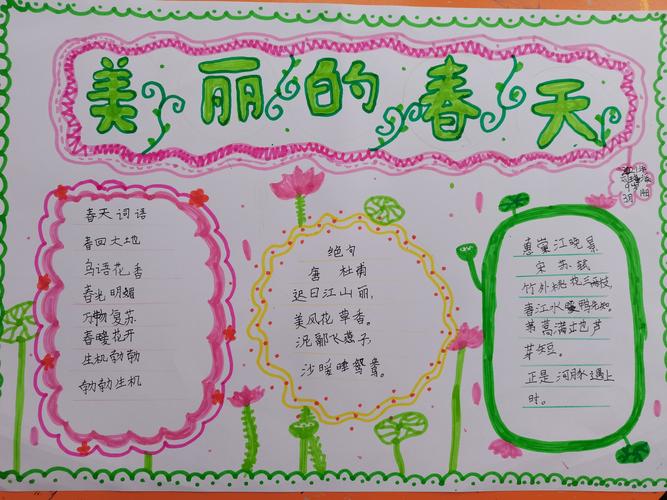 美丽的春天
春天词语
春回大地
鸟语花香
春光明媚
万物复苏
春暖花开
生机勃勃
勃勃生机
绝句
唐 杜甫
迟日江山丽,
美风花草香。
泥飞燕子
沙暖睡鸳鸯。
惠崇江晓景
宋 苏轼
竹外桃花三两枝
春江水暖鸭先知。
蒿满地芦
芽短。
正是河豚遇上
时。